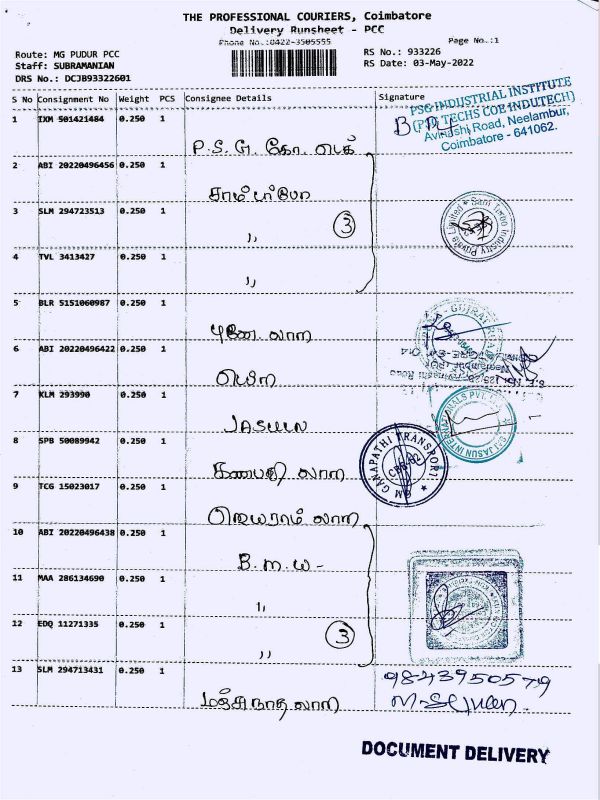 THE PROFESSIONAL COURIERS, Coimbatore
Delivery Runsheet - PCC
Phone No.:0422-3505555
Page No.:1
Route: MG PUDUR PCC
Staff: SUBRAMANIAN
DRS No.: DCJB93322601
RS No.: 933226
RS Date: 03-May-2022
S No Consignment No Weight PCS Consignee Details Signature
PSG INDUSTRIAL INSTITUTE
(PSG TECHS COE INDUTECH)
Avinashi Road, Neelambur,
Coimbatore - 641062.
1 IXM 501421484 0.250 1
P.S.G. கோ. டெக்
2 ABI 20220496456 0.250 1
3 SLM 294723513 0.250 1
3
,,
4 TVL 3413427 0.250 1
,,
5 BLR 5151060987 0.250 1
பூனே. லாரி
6 ABI 20220496422 0.250 1
7 KLM 293990 0.250 1
JASUN
8 SPB 50089942 0.250 1
GM GANAPATHI TRANSPORT
கணபதி லாரி
9 TCG 15023017 0.250 1
ஜெயராம் லாரி
10 ABI 20220496438 0.250 1
B.M.W-
11 MAA 286134690 0.250 1
,,
12 EDQ 11271335 0.250 1
3
,,
13 SLM 294713431 0.250 1
மஞ்சுநாத லாரி
9843950579
DOCUMENT DELIVERY